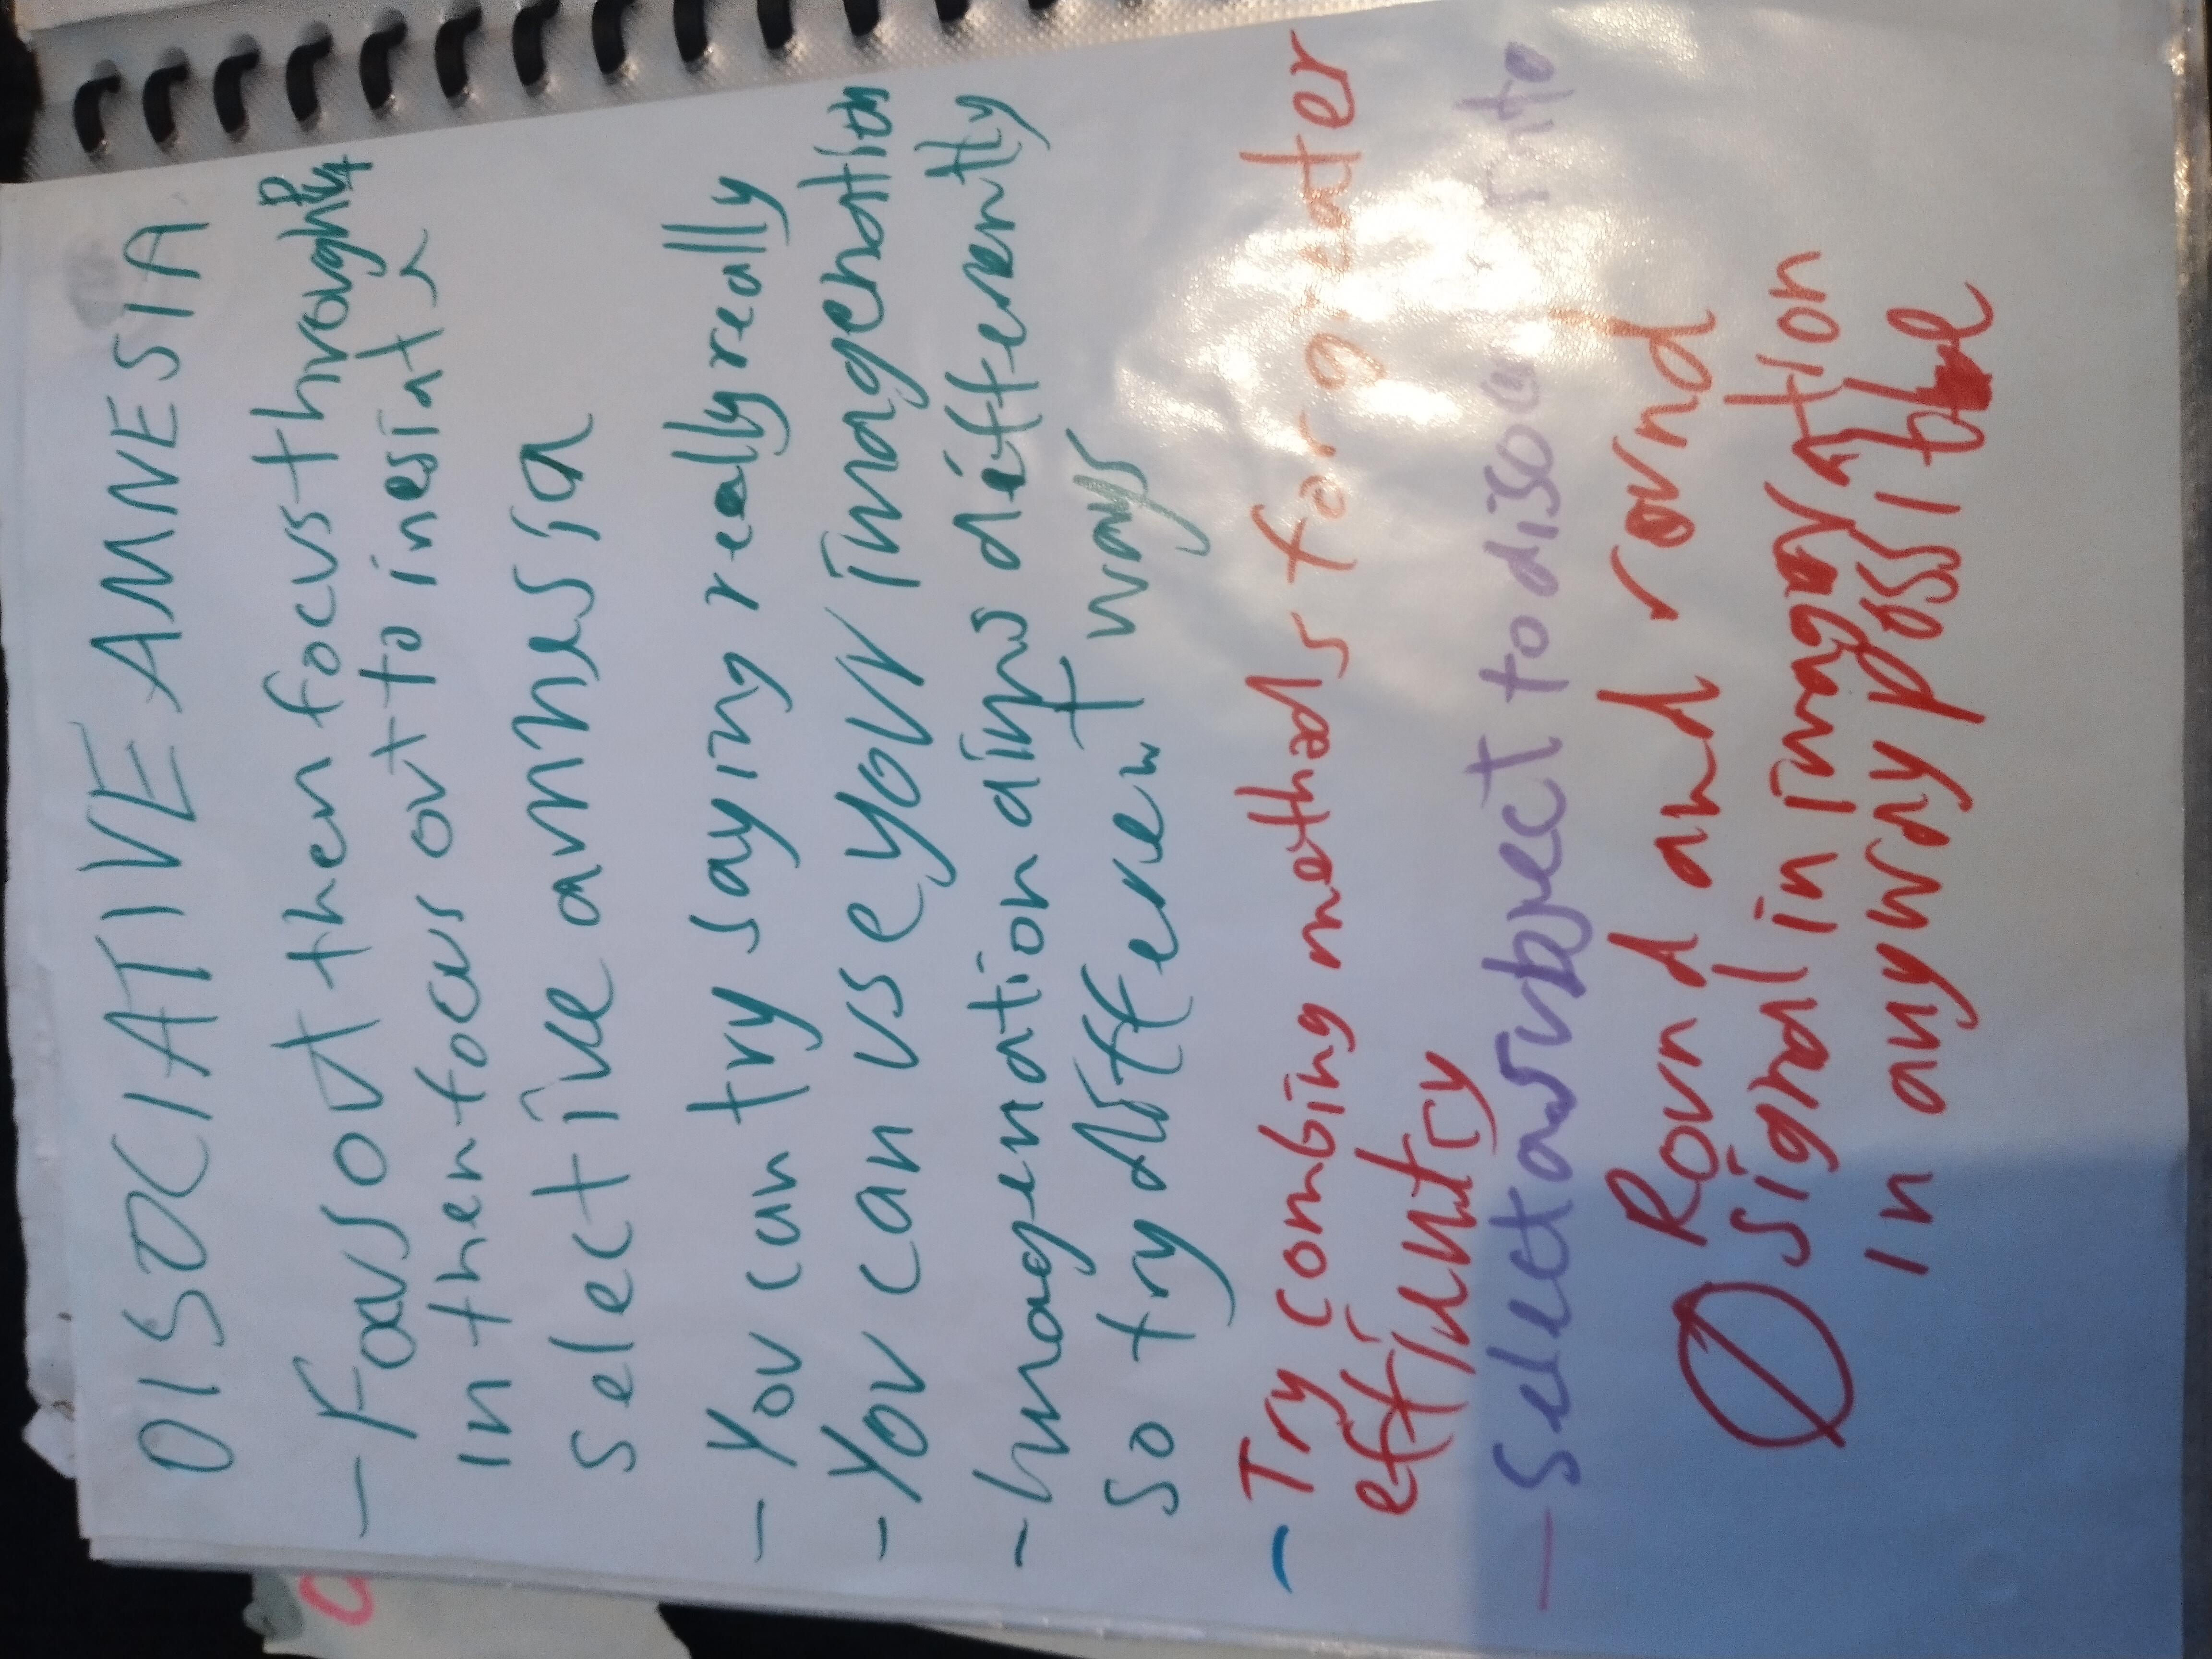 DISOCIATIVE AMNESIA
- Focus out then focus through
in then focus out to inesiate
selective amnesia
- You can try saying really really really
- You can use your imagenation
- Imagenation aligns differently
so try different ways
- Try combing methods for greater
effientcy
- Select a subject to disou into
Round and round
signal in imagination
in anyway possible